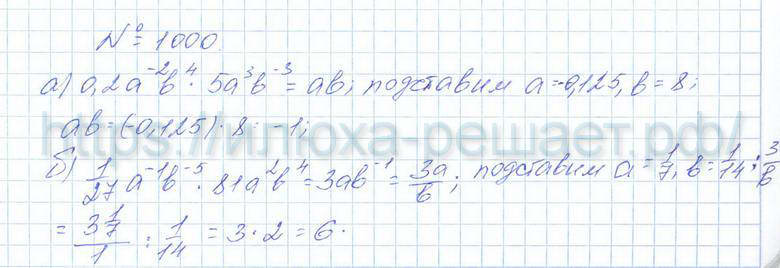 № 1000
а) 0,2a⁻²b⁴ · 5a³b⁻³ = ab; подставим a = -0,125, b = 8;
ab = (-0,125) · 8 = -1;
https://илюха-решает.рф/
б) 1/27 a⁻¹b⁻⁵ · 81a²b⁴ = 3ab⁻¹ = 3a/b; подставим a = 1/7, b = 1/14 : 3/b
= 3 1/7 / 1 : 1/14 = 3 · 2 = 6.